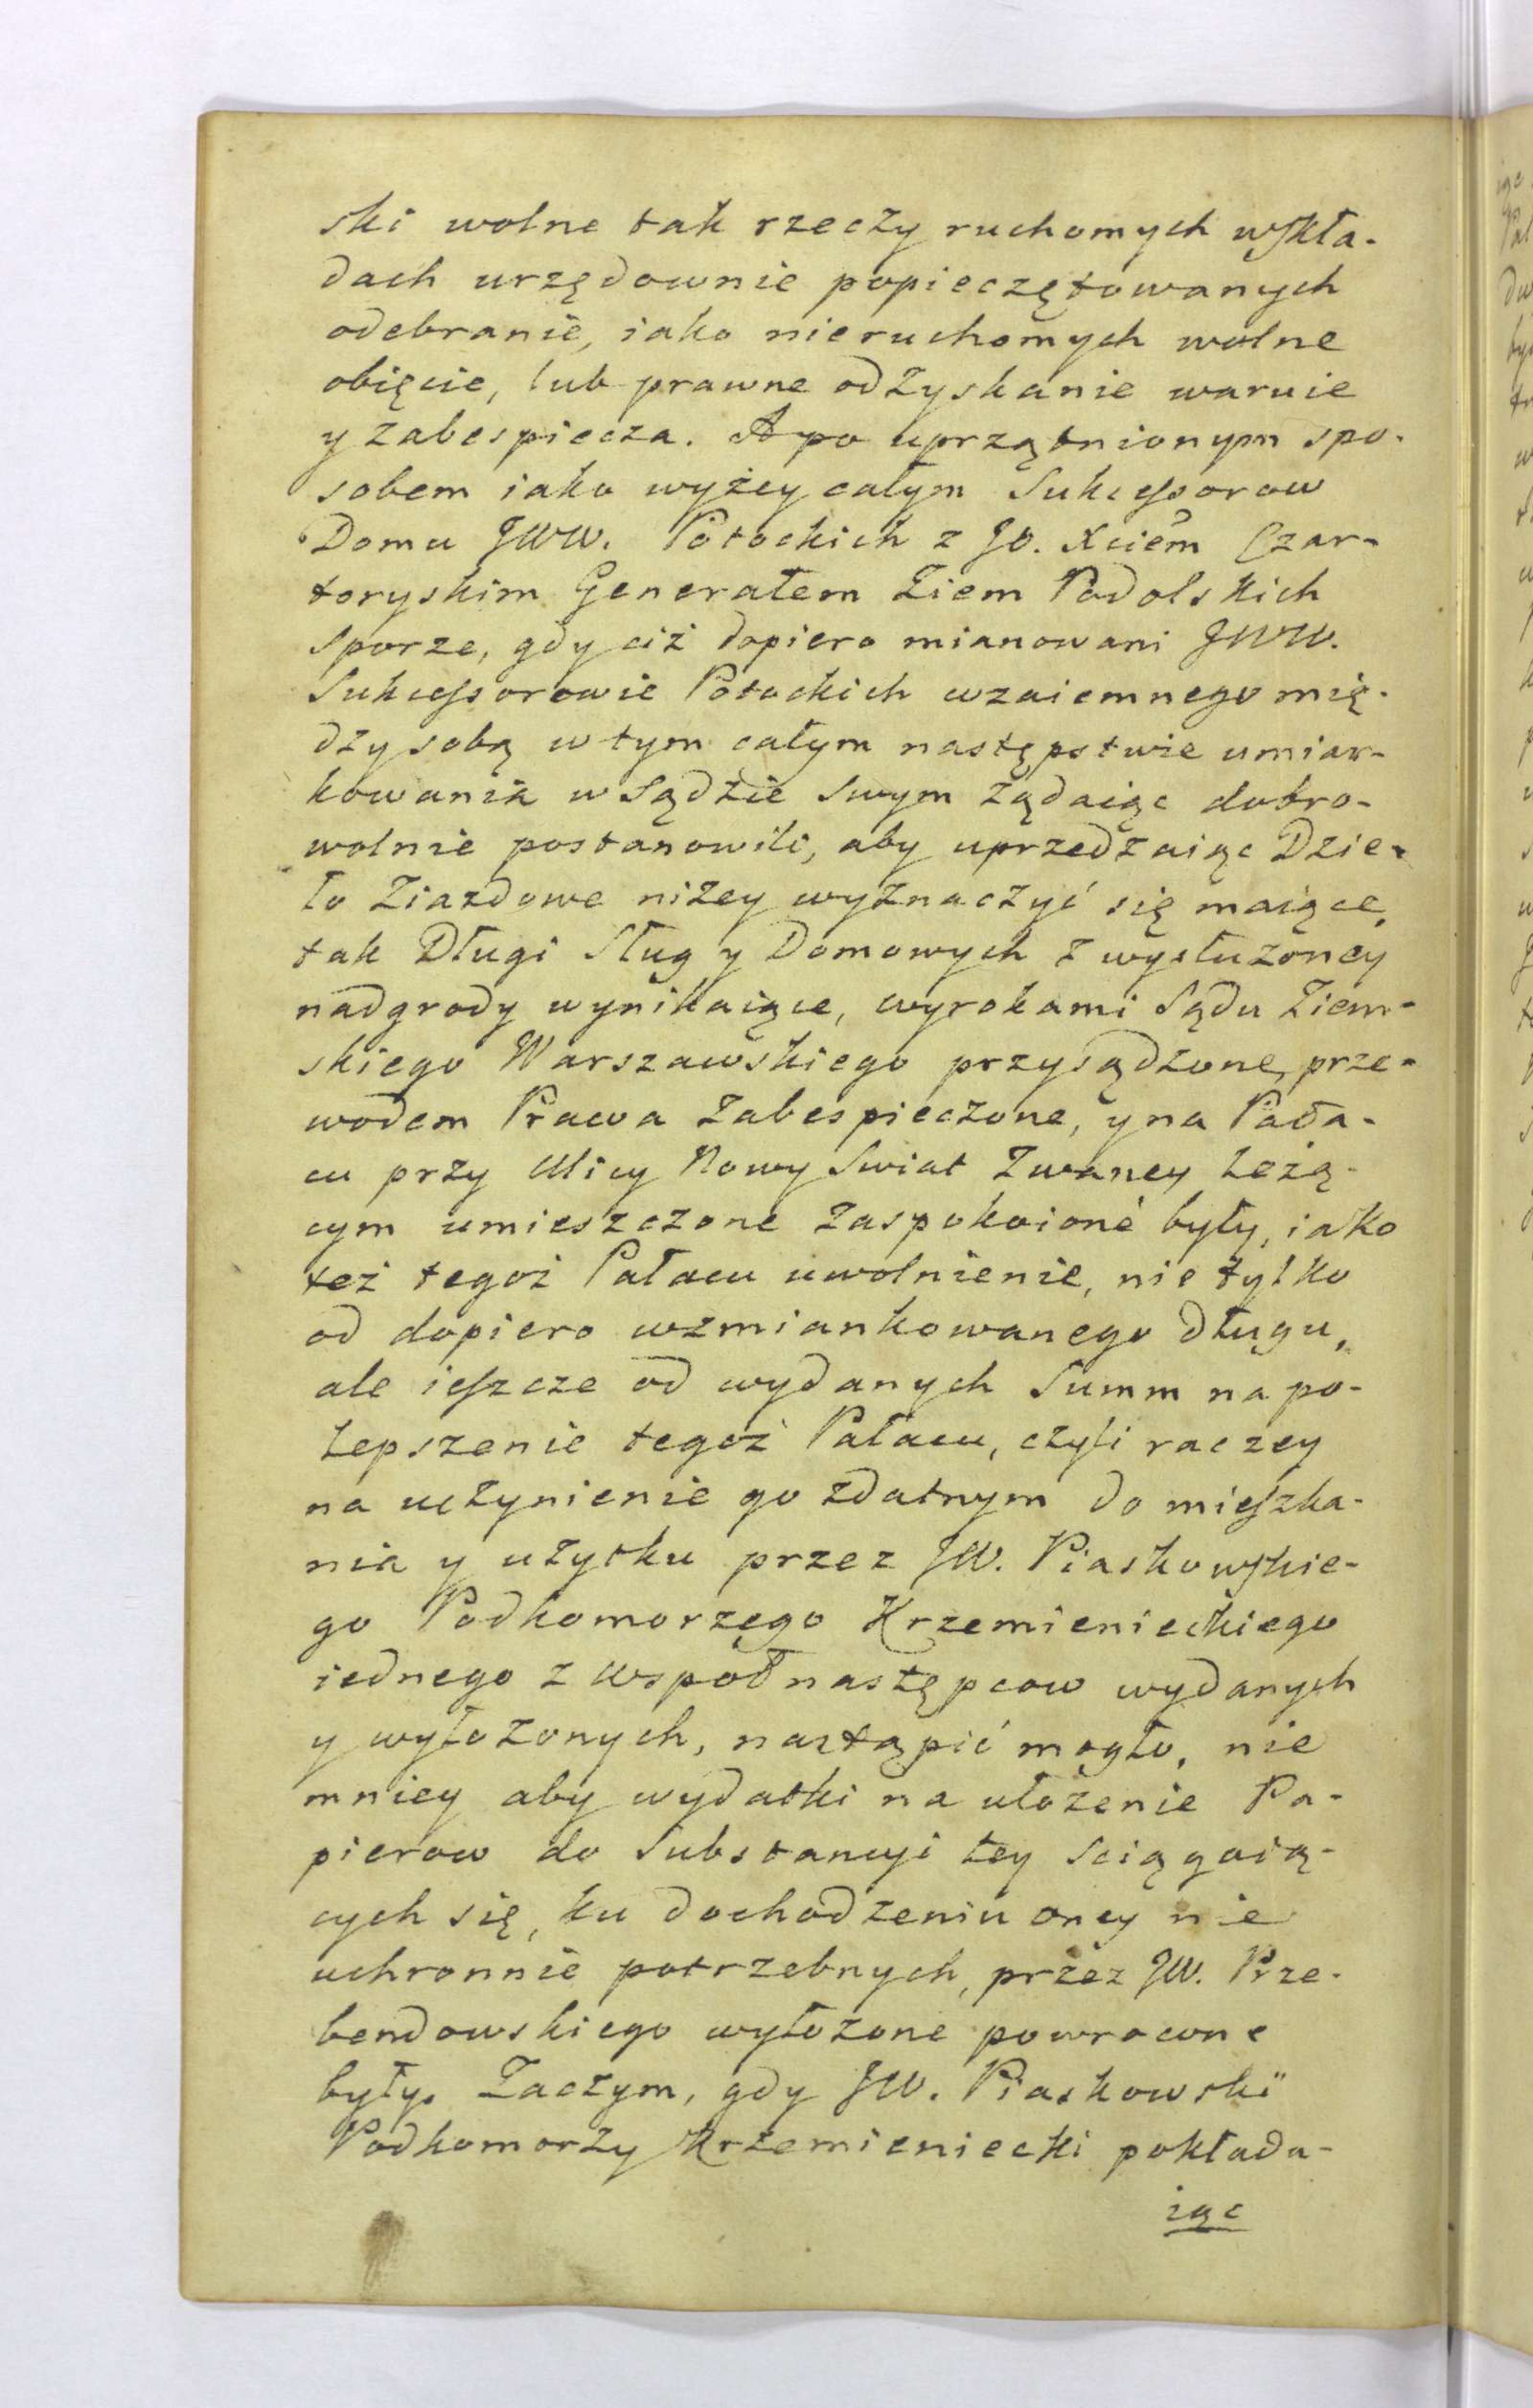 ski wolne tak rzeczy ruchomych wskła-
dach urzędownie popieczętowanych
odebranie, iako nieruchomych wolne
obięcie, lub prawne odzyskanie waruie
y zabespiecza. A po uprzątnionym spo-
sobem iako wyżey całym Sukcessorow
Domu JWW. Potockich z JO. Xciem Czar-
toryskim Generałem Ziem Podolskich
sporze, gdy ciż dopiero mianowani JWW.
Sukcessorowie Potockich wzaiemnego mię-
dzy sobą w tym całym następstwie umiar-
kowania w Sądzie swym żądaiąc dobro-
wolnie postanowili, aby uprzedzaiąc Dzie-
ło Ziazdowe niżey wyznaczyć się maiące,
tak Długi Sług y Domowych z wysłużoney
nadgrody wynikaiące, wyrokami Sądu Ziem-
skiego Warszawskiego przysądzone, prze-
wodem Prawa zabespieczone, y na Pała-
cu przy Ulicy Nowy Swiat zwaney leżą-
cym umieszczone zaspokoione były, iako
też tegoż Pałacu uwolnienie, nie tylko
od dopiero wzmiankowanego długu,
ale ieszcze od wydanych Summ na po-
lepszenie tegoż Pałacu, czyli raczey
na uczynienie go zdatnym do mieszka-
nia y użytku przez JW. Piaskowskie-
go Podkomorzego Krzemienieckiego
iednego z współnastępcow wydanych
y wyłożonych, nastąpić mogło, nie
mniey aby wydatki na ułożenie Pa-
pierow do Substancyi tey sciągaią-
cych się, ku dochodzeniu oney nie
uchronnie potrzebnych, przez JW. Prze-
bendowskiego wyłożone powrocone
były. Zaczym, gdy JW. Piaskowski
Podkomorzy Krzemieniecki pokłada-
iąc